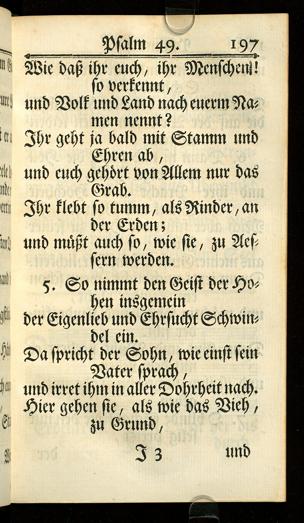 Psalm 49. 197
Wie daß ihr euch, ihr Menschen!!
so verkennt,
und Volk und Land nach euerm Na-
men nennt?
Ihr geht ja bald mit Stamm und
Ehren ab,
und euch gehört von Allem nur das
Grab.
Ihr klebt so tumm, als Rinder, an
der Erden;
und müßt auch so, wie sie, zu Aes-
sern werden.
5. So nimmt den Geist der Ho-
hen insgemein
der Eigenlieb und Ehrsucht Schwin-
del ein.
Da spricht der Sohn, wie einst sein
Vater sprach,
und irret ihm in aller Dohrheit nach.
Hier gehen sie, als wie das Vieh,
zu Grund,
J 3 und